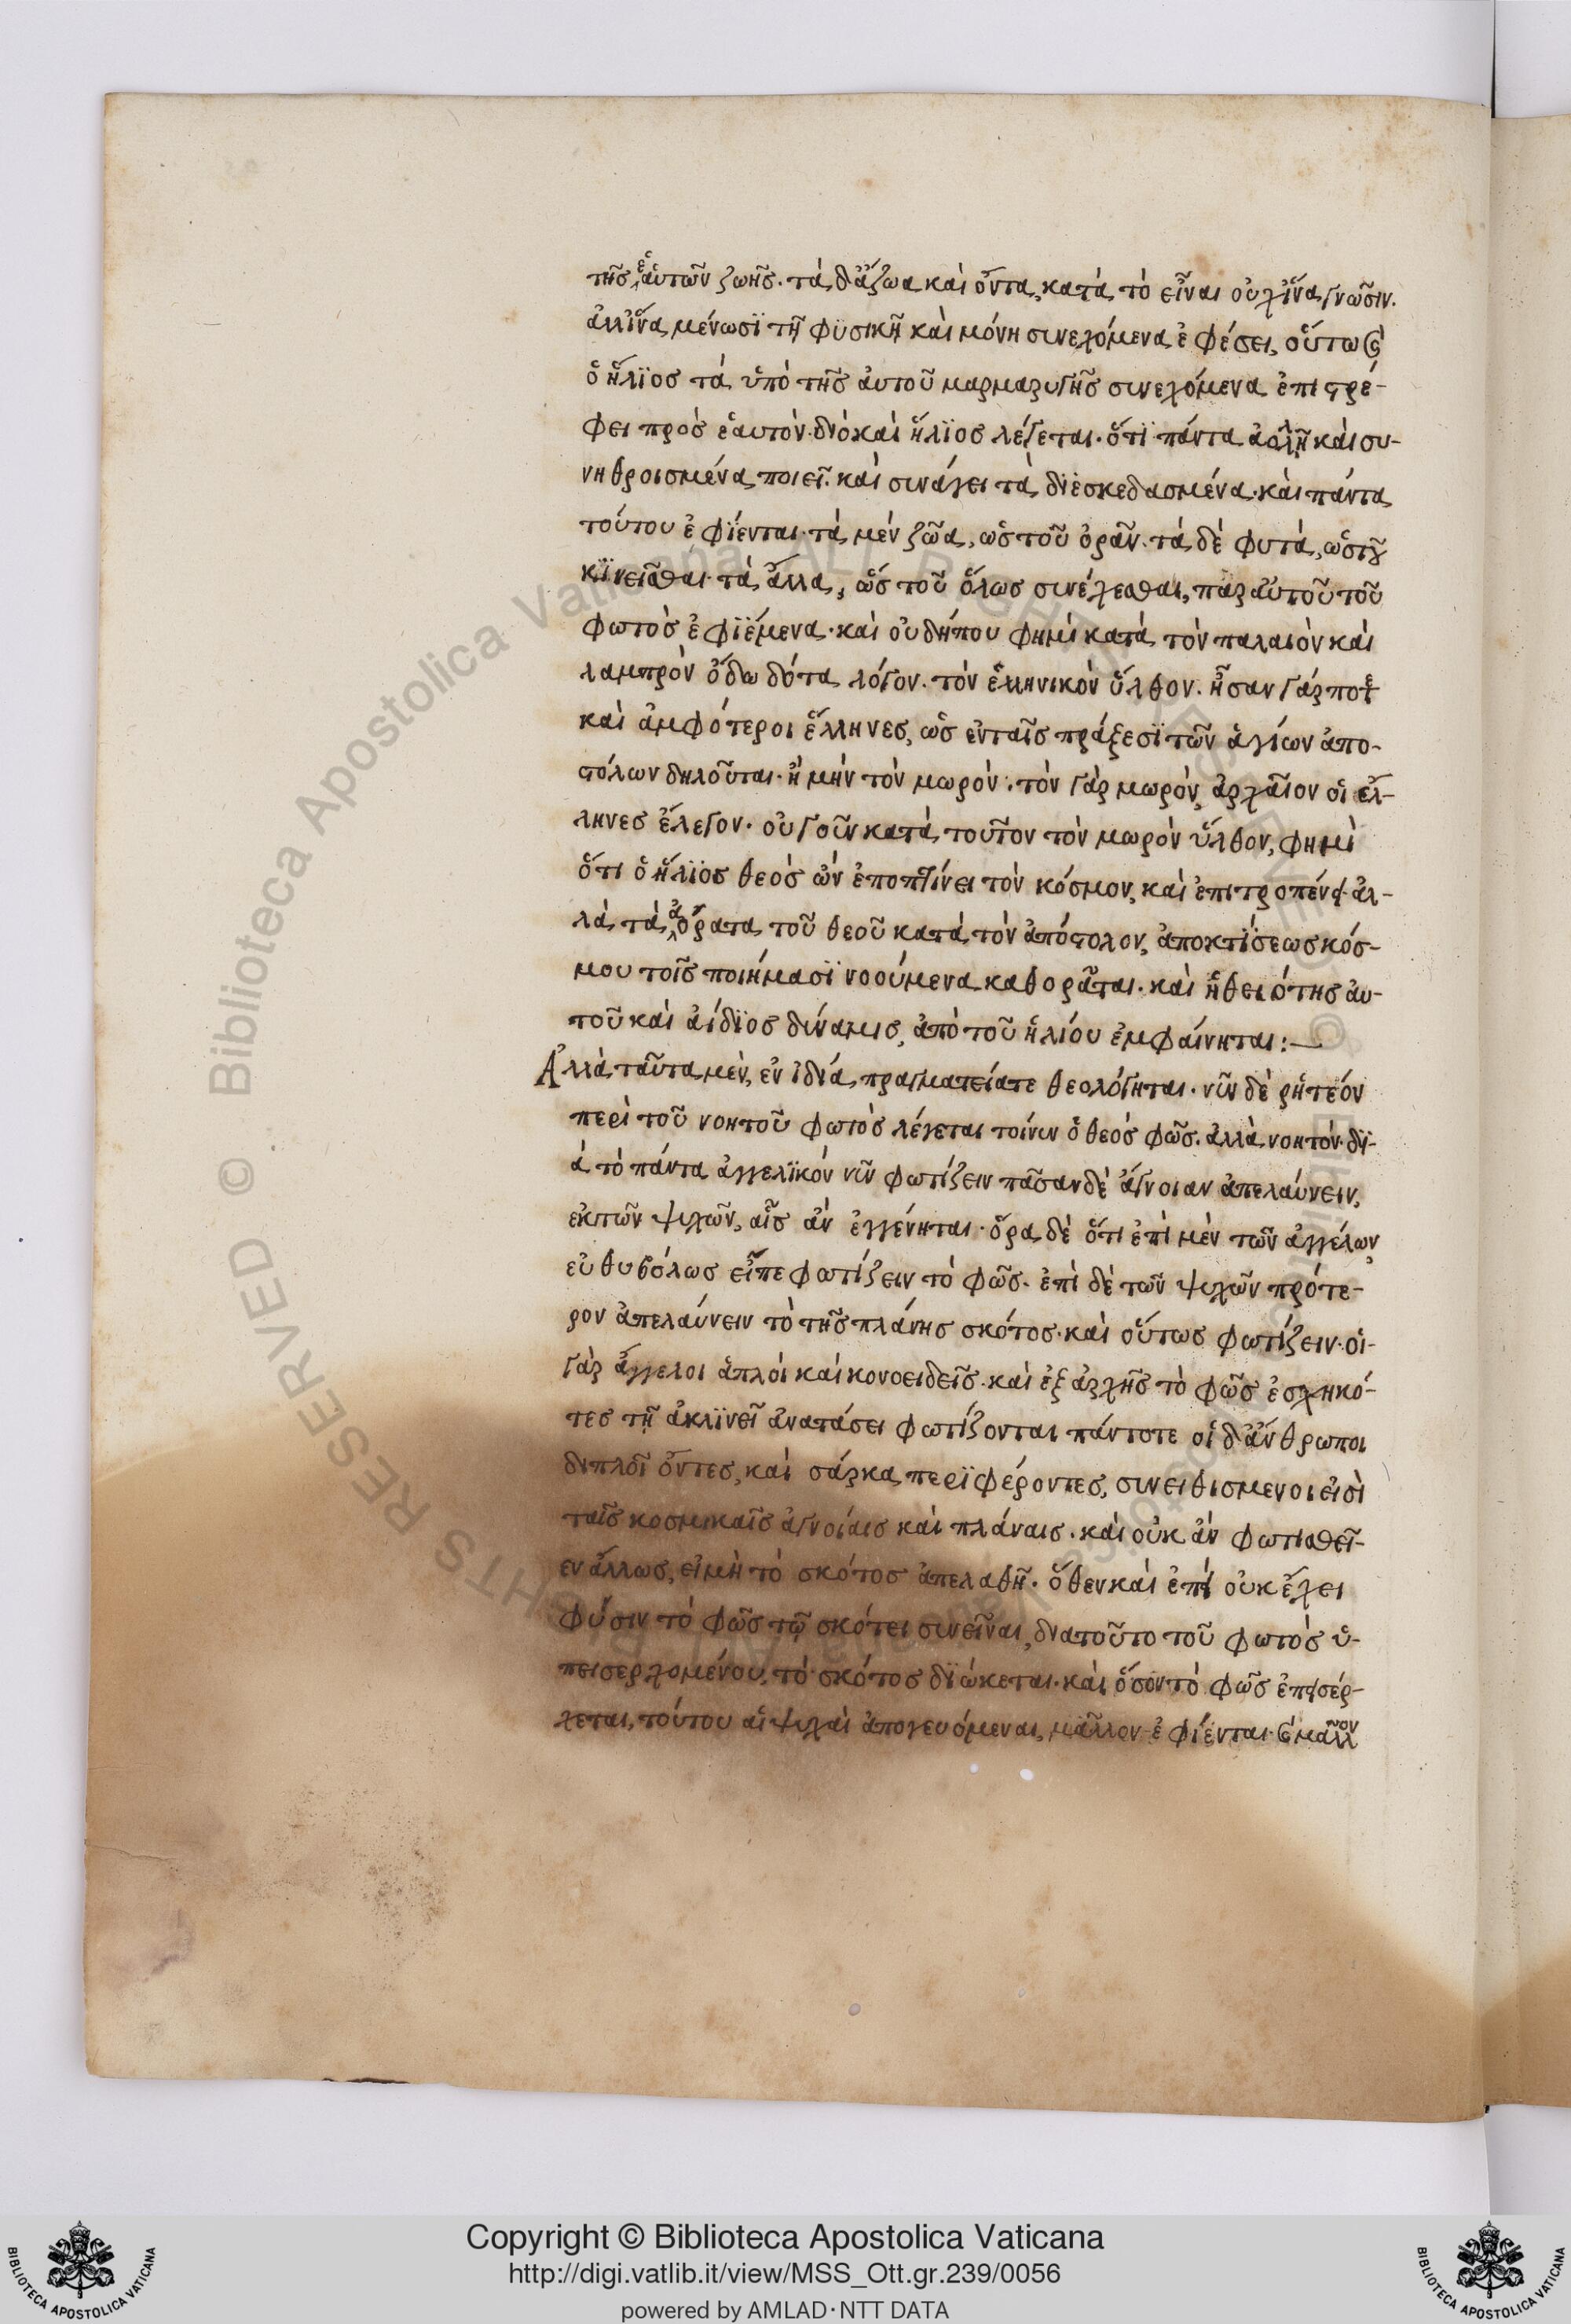 τῆς ἑαὑτῶν ζωῆς· τὰ δ' ἄζωα καὶ ὄντα, κατὰ τὸ εἶναι οὐχ ἵνα γνῶσιν.
ἀλλ' ἵνα μένωσϊ τῇ φϋσικῇ καὶ μόνῃ συνεχόμενα ἐφέσει, οὕτω καὶ
ὁ ἥλϊος τὰ ὑπὸ τῆς ἀυτοῦ μαρμαρυγῆς συνεχόμενα ἐπιστρέ-
φει πρὸς ἑαυτόν· διὸ καὶ ἥλϊος λέγεται· ὅτϊ πάντα ἀολλῆ καὶ συ-
νηθροισμένα ποιεῖ. καὶ συνάγει τὰ δϊεσκεδασμένα· καὶ πάντα
τούτου ἐφΐενται· τὰ μὲν ζῶα, ὡς τοῦ ὁρᾶν. τὰ δὲ φυτὰ, ὡς τοῦ
κϊνεῖσθαι· τὰ ἄλλα, ὡς τοῦ ὅλως συνέχεσθαι, παρ αὐτοῦ τοῦ
φωτὸς ἐφϊέμενα· καὶ οὐ δήπου φημὶ κατὰ τὸν παλαιὸν καὶ
λαμπρὸν λόγον. τὸν ἑλληνικὸν ὕλθον. ἦσαν γάρ ποτὲ
καὶ ἀμφότεροι ἕλληνες, ὡς ἐν ταῖς πράξεσϊ τῶν ἁγίων ἀπο-
στόλων δηλοῦται· ἢ μὴν τὸν μωρόν: τὸν γὰρ μωρὸν, ἀρχαῖον οἱ ἕλ-
ληνες ἔλεγον· οὐ γοῦν κατὰ τοῦτον τὸν μωρὸν ὕλθον, φημὶ
ὅτι ὁ ἥλϊος θεὸς ὢν τὸν κόσμον, καὶ ἀλ-
λὰ τὰ ἀόρατα τοῦ θεοῦ κατὰ τὸν ἀπόστολον, ἀπο κτΐσεως κόσ-
μου τοῖς ποιήμασϊ νοούμενα καθορᾶται· καὶ ἡ θειότης ἀυ-
τοῦ καὶ ἀίδϊος δύναμις, ἀπὸ τοῦ ἡλίου ἐμφαίνηται:—
Ἀλλὰ ταῦτα μὲν, ἐν ἰδία πραγματείατε θεολόγηται· νῦν δὲ ῥητέον
περὶ τοῦ νοητοῦ φωτὸς λέγεται τοίνυν ὁ θεὸς φῶς. ἀλλὰ νοητόν· δϊ-
ὰ τὸ πάντα ἀγγελϊκὸν νῦν φωτίζειν πᾶσαν δὲ ἄγνοιαν ἀπελαύνειν,
ἐκ τῶν ψυχῶν, αἷς ἂν ἐγγένηται· ὅρα δὲ ὅτι ἐπὶ μὲν τῶν ἀγγέλων
εὐθυβόλως εἶπε φωτίζειν τὸ φῶς· ἐπὶ δὲ τῶν ψυχῶν πρότε-
ρον ἀπελαύνειν τὸ τῆς πλάνης σκότος· καὶ οὕτως φωτίζειν· οἱ-
γὰρ ἄγγελοι ἁπλοὶ καὶ κονοειδεῖς· καὶ ἐξ ἀρχῆς τὸ φῶς ἐσχηκό-
τες τῇ ἀκλϊνεῖ ἀνατάσει φωτίζονται πάντοτε οἱ δ' ἄνθρωποι
διπλοῖ ὄντες, καὶ σάρκα περϊφέροντες, συνειθισμενοι εἰσὶ
ταῖς κοσμικαῖς ἀγνοίαις καὶ πλάναις· καὶ οὐκ ἂν φωτισθεῖ-
εν ἄλλως, εἰμὴ τὸ σκότος ἀπελαθῆ· ὅθεν καὶ ἐπεὶ οὐκ ἔχει
φύσιν τὸ φῶς τῷ σκότει συνεῖναι, διατοῦτο τοῦ φωτὸς ὑ-
πεισερχομένου, τὸ σκότος δϊώκεται· καὶ ὅσον τὸ φῶς ἐπεισέρ-
χεται, τούτου αἱ ψυχαὶ ἀπογευόμεναι, μᾶλλον ἐφΐενται· καὶ μᾶλλον
Copyright © Biblioteca Apostolica Vaticana
http://digi.vatlib.it/view/MSS_Ott.gr.239/0056
powered by AMLAD·NTT DATA